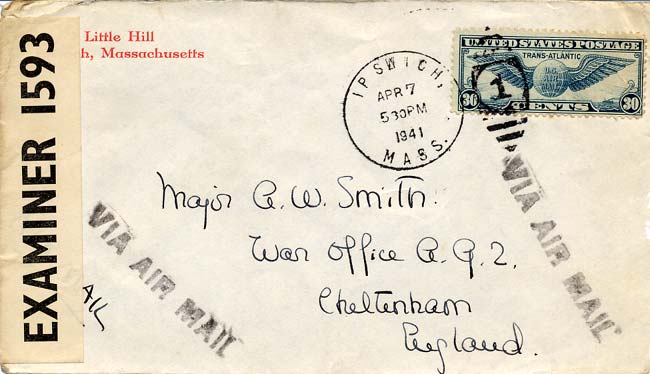 EXAMINER 1593
Little Hill
h, Massachusetts
IPSWICH,
APR 7
530PM
1941
MASS.
1
UNITED STATES POSTAGE
TRANS-ATLANTIC
U.S.
AIR
MAIL
30 CENTS 30
Major A. W. Smith.
War Office A.G.2.
Cheltenham
England.
VIA AIR MAIL
VIA AIR MAIL